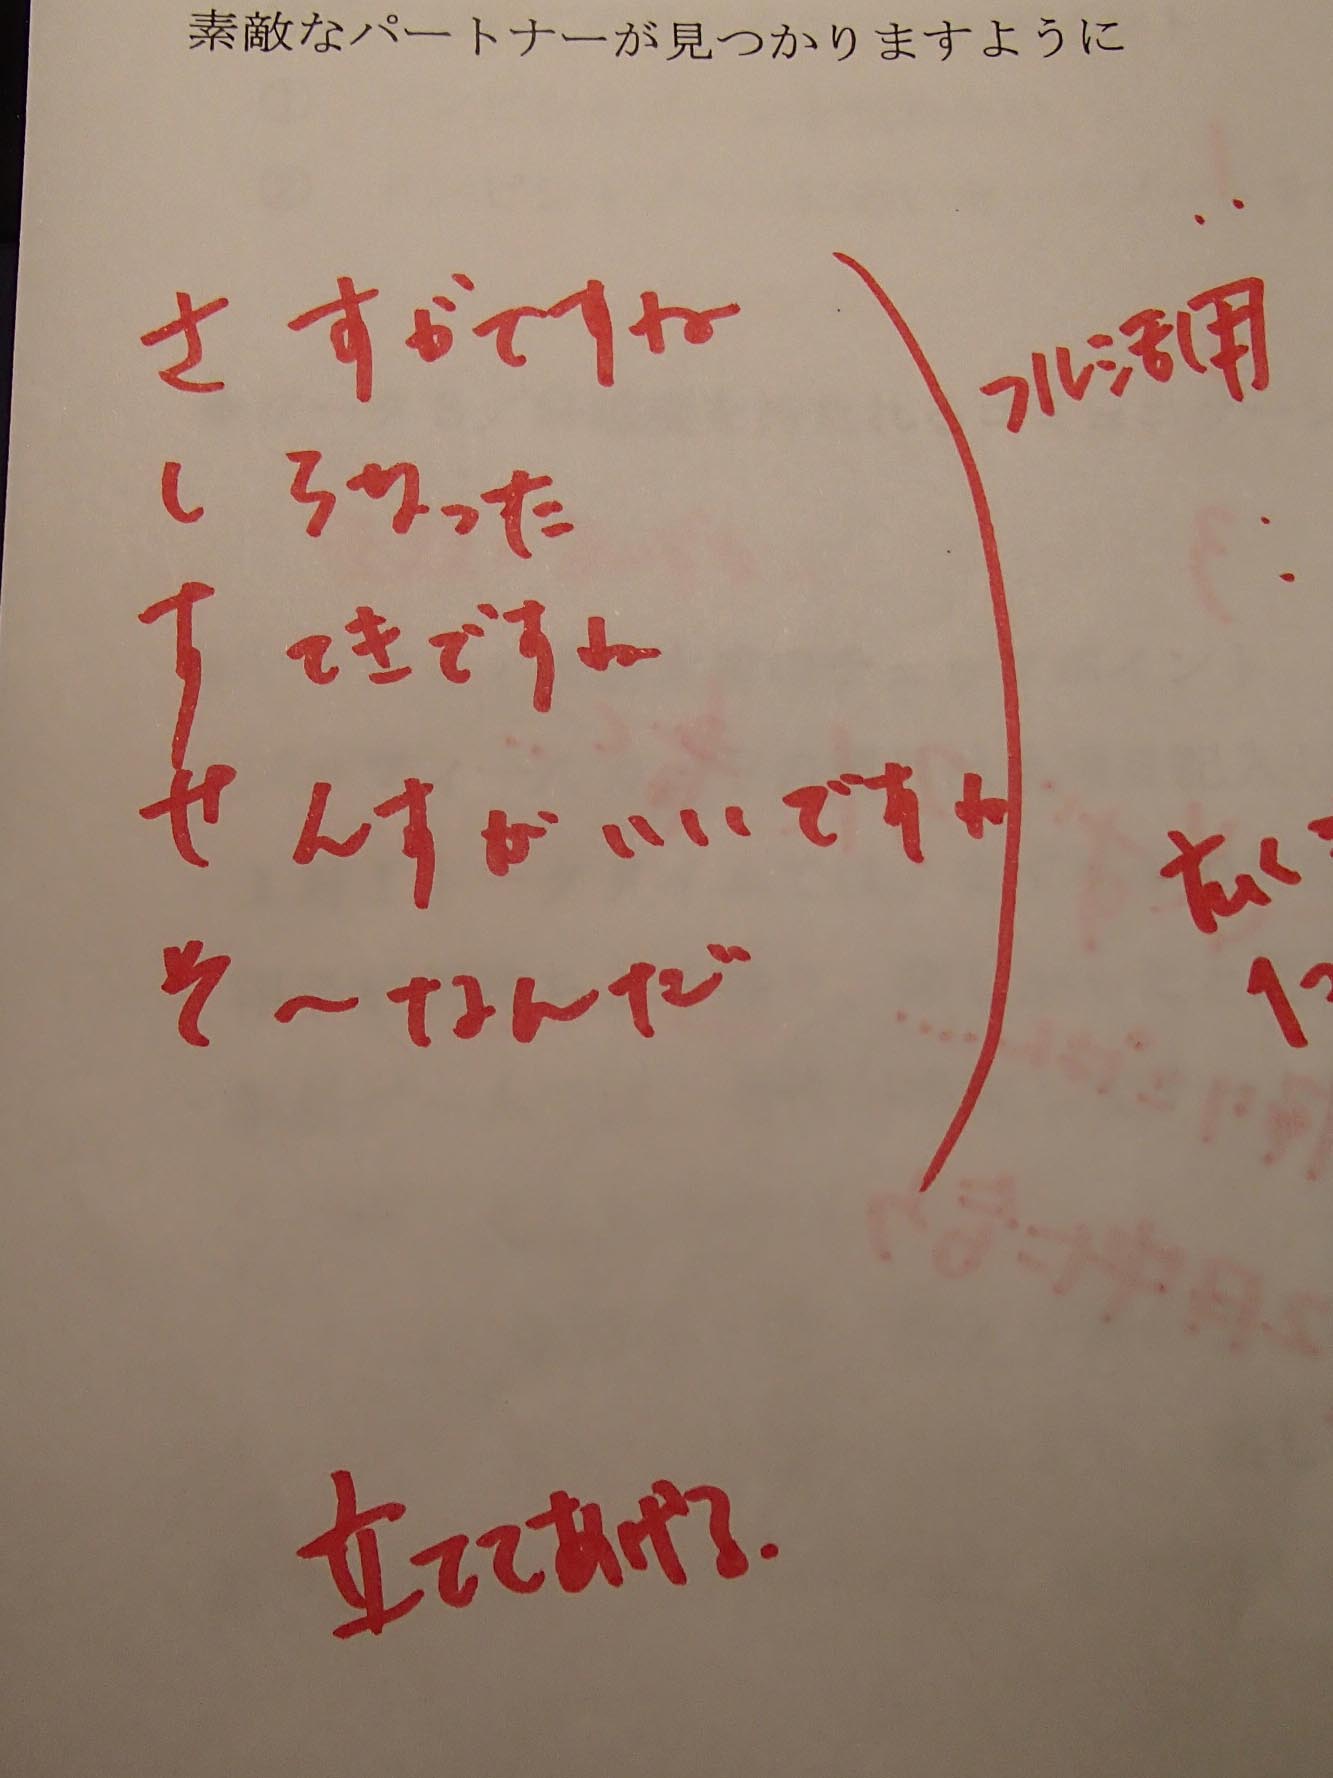 素敵なパートナーが見つかりますように
さ すがですね
し らなかった
す てきですね
せ んすがいいですね
そ 〜なんだ
フル活用
立ててあげる.